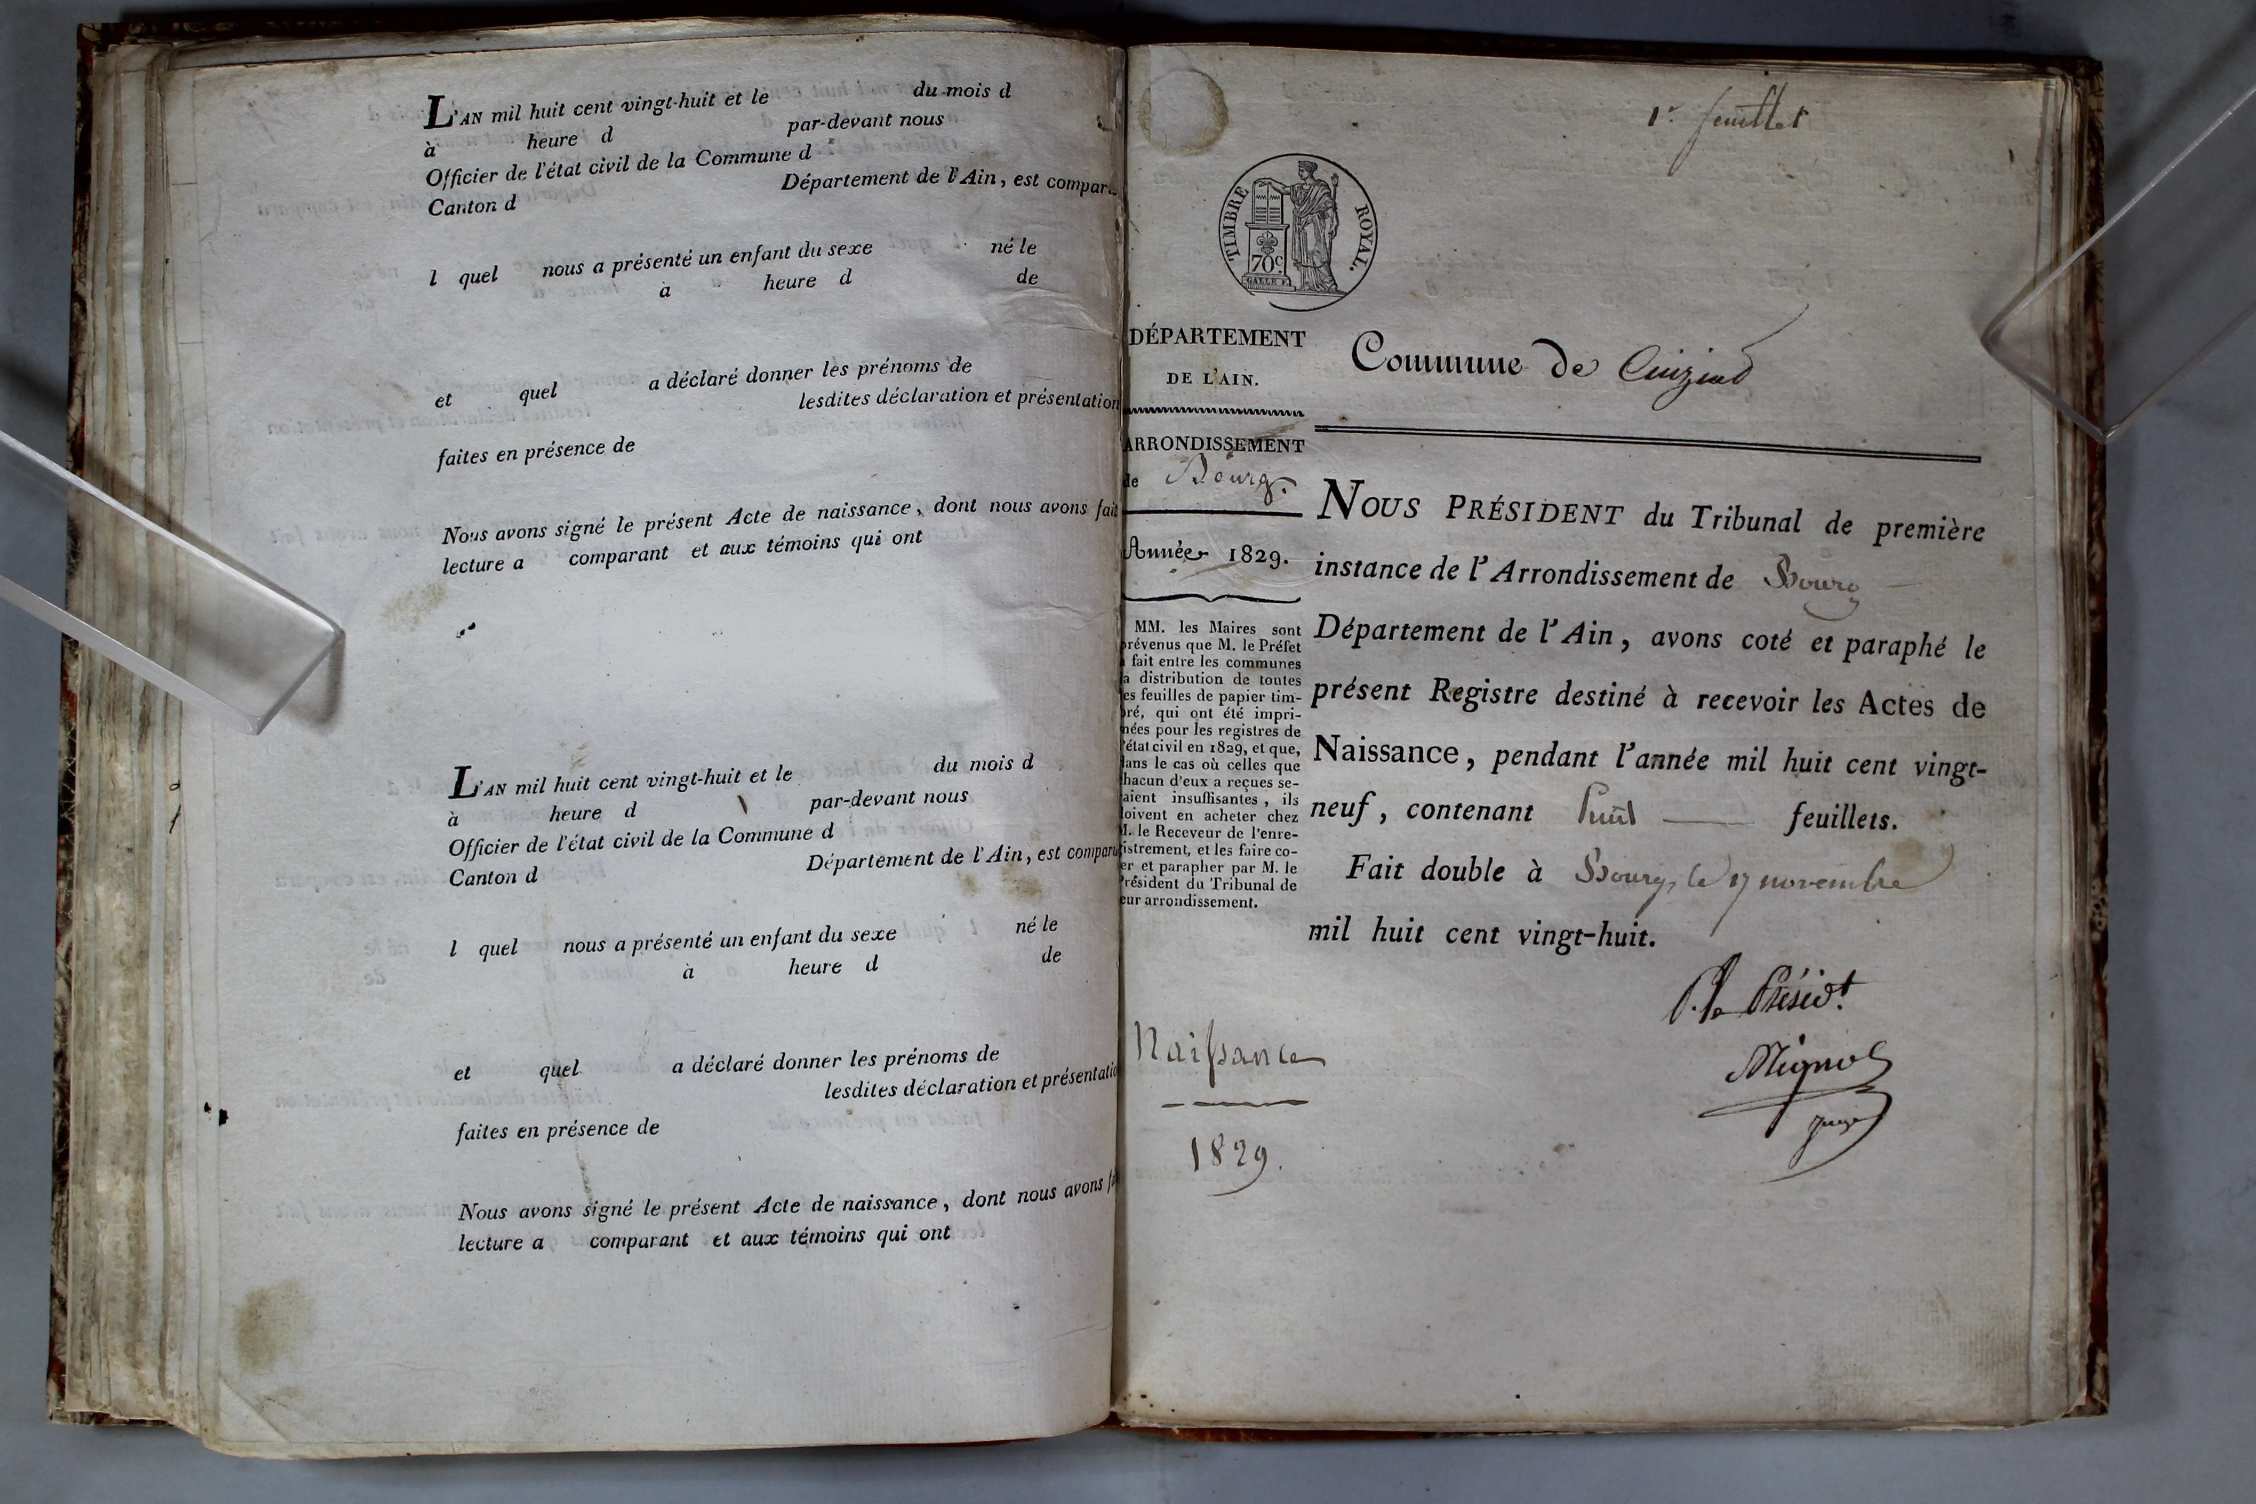 L'AN mil huit cent vingt-huit et le du mois d
à heure d par-devant nous
Officier de l'état civil de la Commune d
Canton d Département de l'Ain, est compar
l quel nous a présenté un enfant du sexe né le
à heure d de
et quel a déclaré donner les prénoms de
lesdites déclaration et présentation
faites en présence de
Nous avons signé le présent Acte de naissance, dont nous avons fait
lecture a comparant et aux témoins qui ont
L'AN mil huit cent vingt-huit et le du mois d
à heure d par-devant nous
Officier de l'état civil de la Commune d
Canton d Département de l'Ain, est comparu
l quel nous a présenté un enfant du sexe né le
à heure d de
et quel a déclaré donner les prénoms de
lesdites déclaration et présentatio
faites en présence de
Nous avons signé le présent Acte de naissance, dont nous avons fa
lecture a comparant et aux témoins qui ont
1r. feuillet
TIMBRE ROYAL.
70C
GALLE F.
DÉPARTEMENT
DE L'AIN.
ARRONDISSEMENT
de Bourg.
Année 1829.
MM. les Maires sont
prévenus que M. le Préfet
a fait entre les communes
la distribution de toutes
les feuilles de papier tim-
bré, qui ont été impri-
mées pour les registres de
l'état civil en 1829, et que,
dans le cas où celles que
chacun d'eux a reçues se-
raient insuffisantes, ils
doivent en acheter chez
M. le Receveur de l'enre-
gistrement, et les faire co-
ter et parapher par M. le
Président du Tribunal de
leur arrondissement.
Naissance
1829.
Commune de Cuiziat
NOUS PRÉSIDENT du Tribunal de première
instance de l'Arrondissement de Bourg
Département de l'Ain, avons coté et paraphé le
présent Registre destiné à recevoir les Actes de
Naissance, pendant l'année mil huit cent vingt-
neuf, contenant huit feuillets.
Fait double à Bourg, le 17 novembre
mil huit cent vingt-huit.
P. le Présidt.
juge